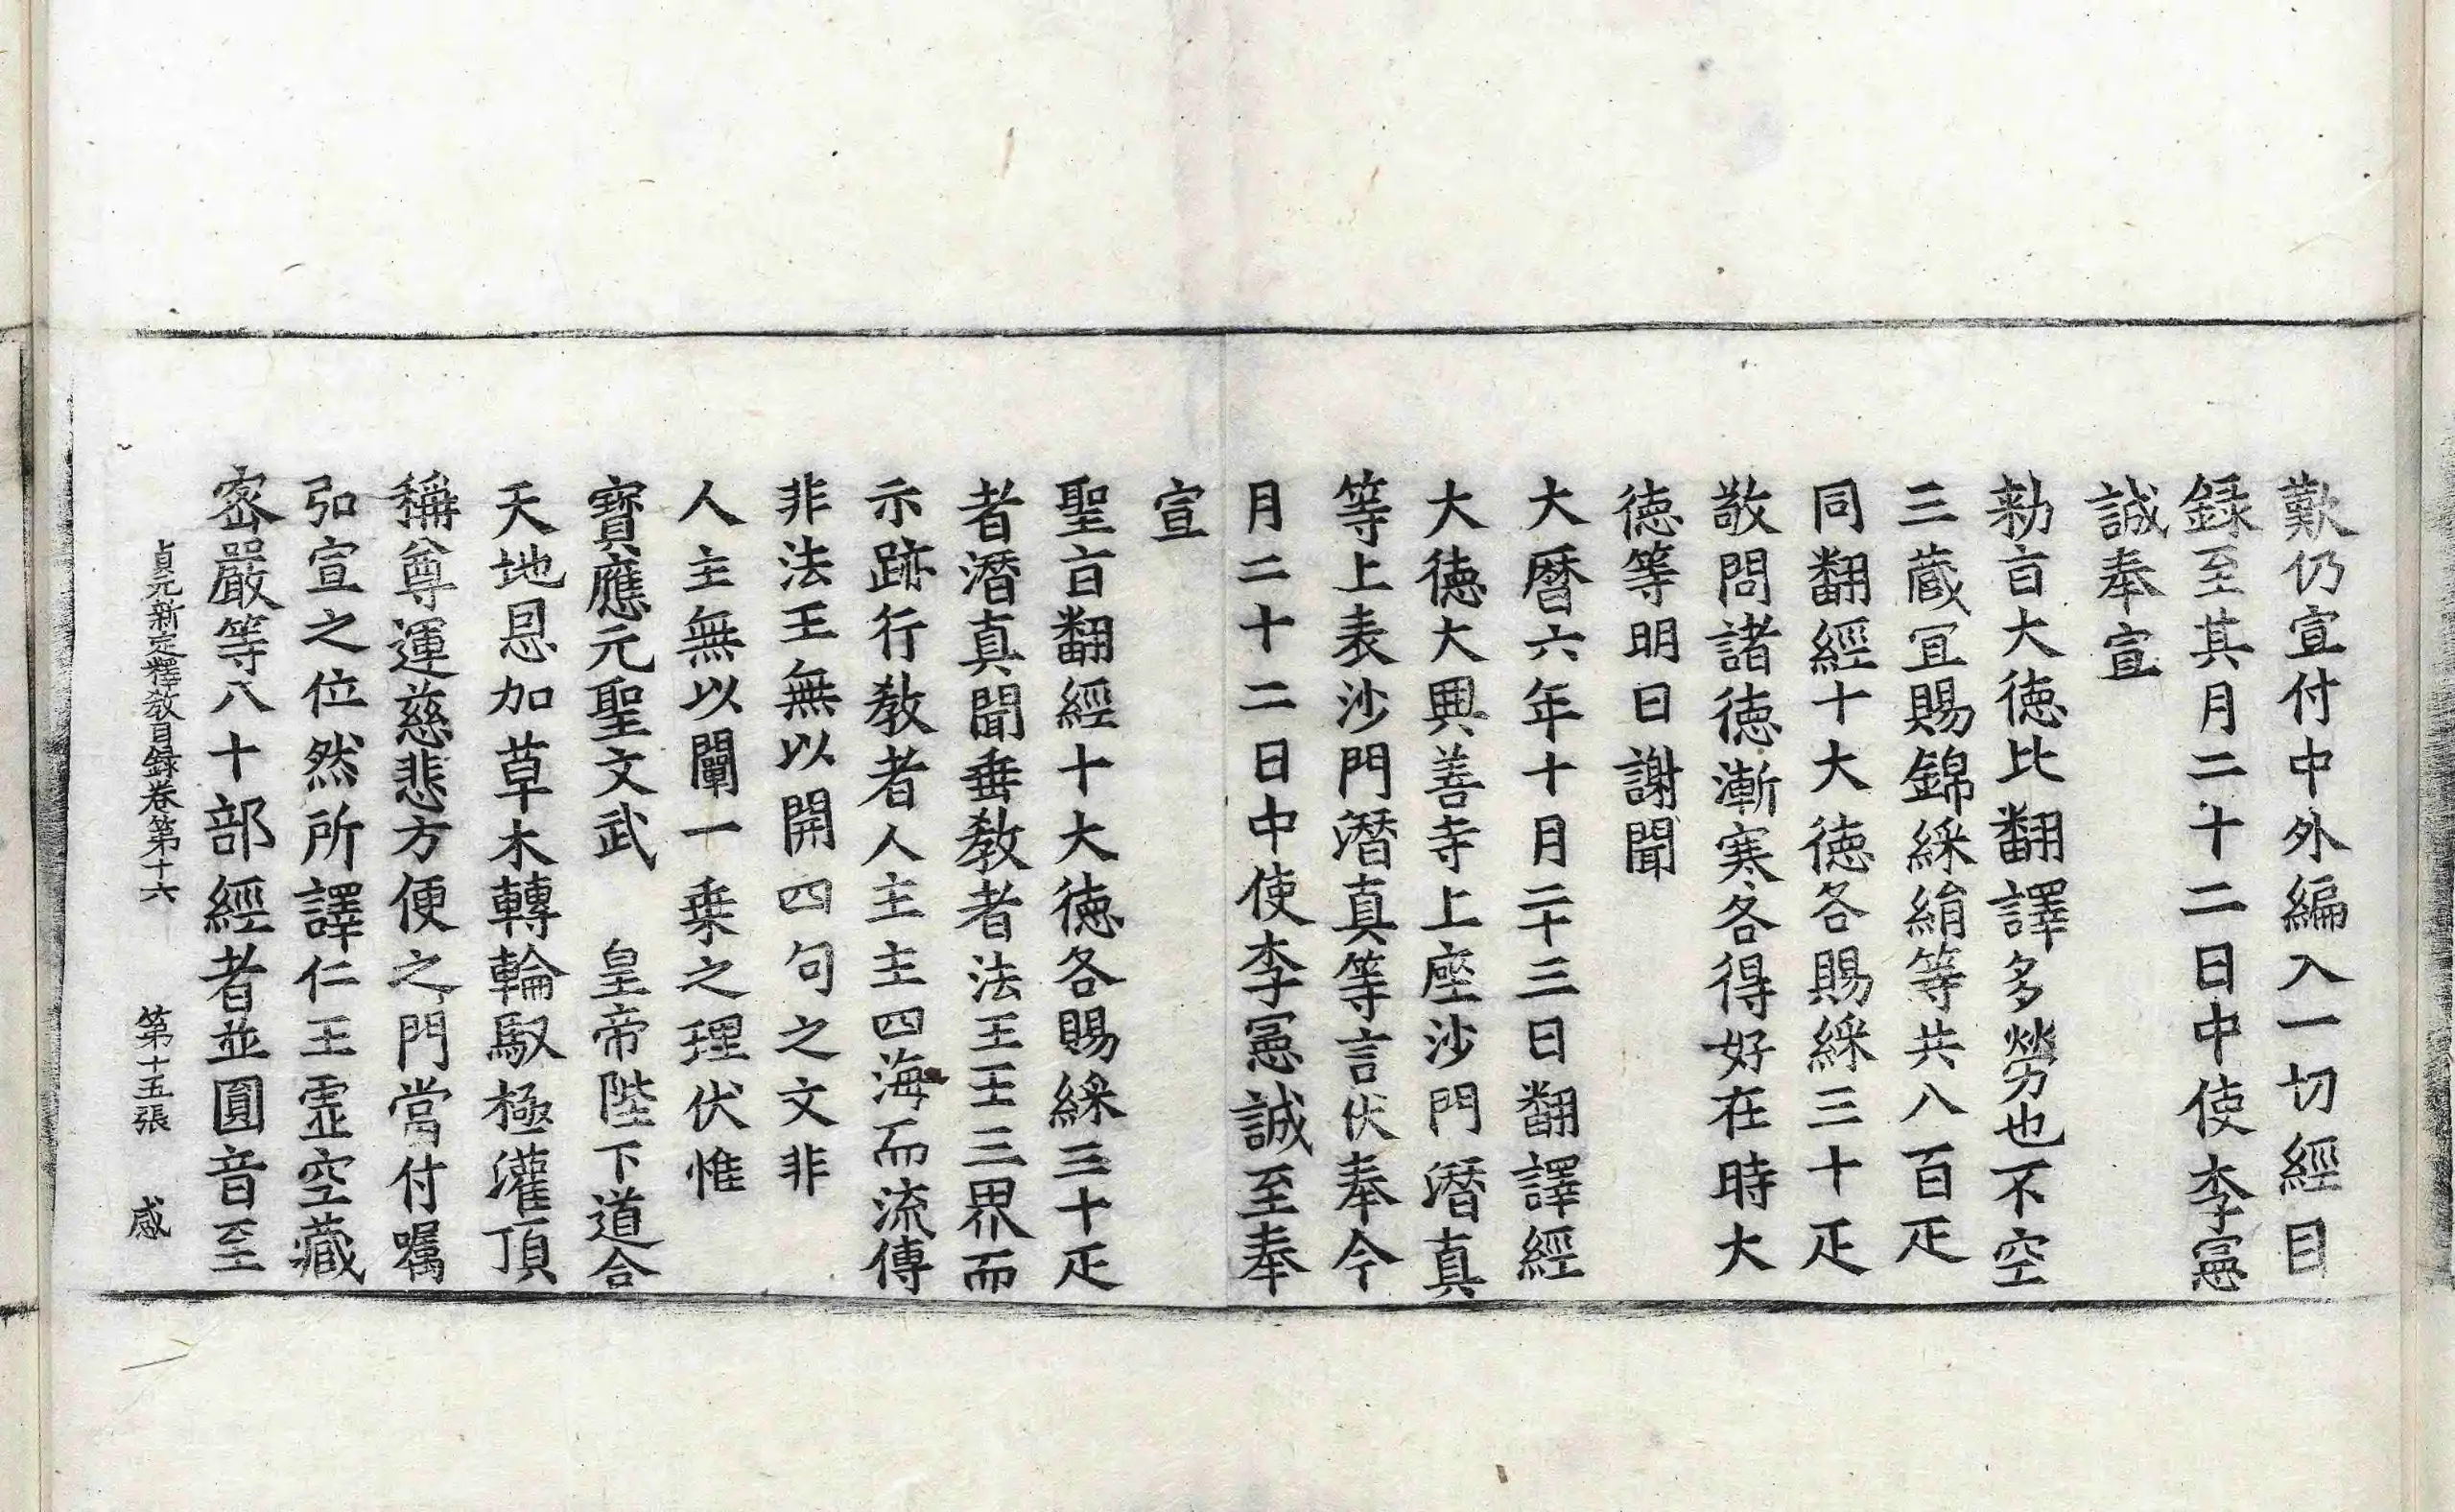 歎仍宣付中外編入一切經目
録至其月二十二日中使李憲
誠奉宣
勑㫖大徳比翻譯多勞也不空
三蔵冝賜錦綵絹等共八百疋
同翻經十大徳各賜綵三十疋
敬問諸徳漸寒各得好在時大
徳等明日謝聞
大暦六年十月二十三日翻譯經
大徳大興善寺上座沙門潛真
等上表沙門潛真等言伏奉今
月二十二日中使李憲誠至奉
宣
聖㫖翻經十大徳各賜綵三十疋
者潛真聞垂教者法王王三界而
示跡行教者人主主四海而流傳
非法王無以開四句之文非
人主無以闡一乗之理伏惟
寶應元聖文武　皇帝陛下道合
天地恩加草木轉輪馭極灌頂
稱尊運慈悲方便之門當付囑
弘宣之位然所譯仁王虛空藏
密嚴等八十部經者並圓音至
貞元新定釋教目録卷第十六　第十五張　感